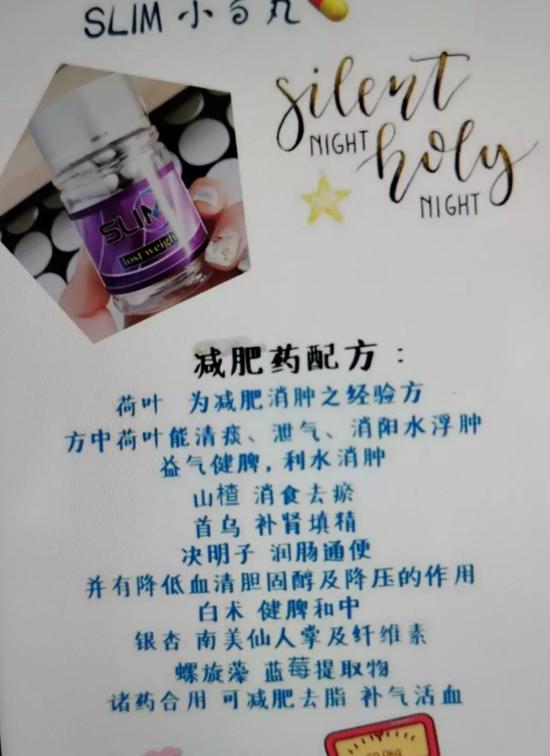 SLIM 小白丸
silent
NIGHT
holy
NIGHT
SLIM
lost weigh
减肥药配方：
荷叶 为减肥消肿之经验方
方中荷叶能清痰、泄气、消阳水浮肿
益气健脾，利水消肿
山楂 消食去瘀
首乌 补肾填精
决明子 润肠通便
并有降低血清胆固醇及降压的作用
白术 健脾和中
银杏 南美仙人掌及纤维素
螺旋藻 蓝莓提取物
诸药合用 可减肥去脂 补气活血